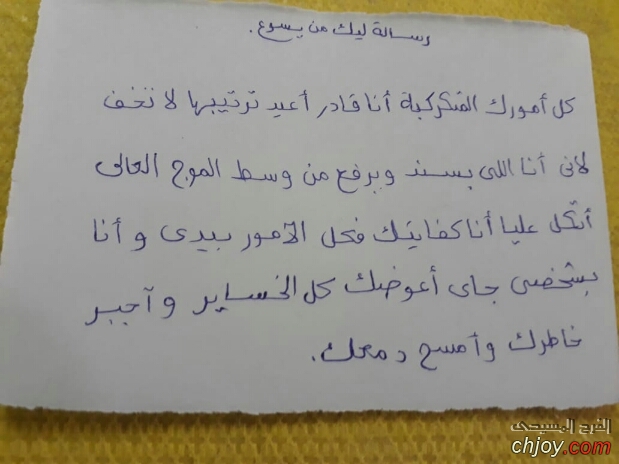 رسالة ليك من يسوع.
كل أمورك المتكركبة أنا قادر أعيد ترتيبها لا تخف
لانى أنا اللى بسند وبرفع من وسط الموج العالى
أتكل عليا أنا كفايتك فحل الآمور بيدى وأنا
بشخصى جاى أعوضك كل الخساير وآجبر
خاطرك وأمسح دمعك.
الفرح المسيحى
chjoy.com